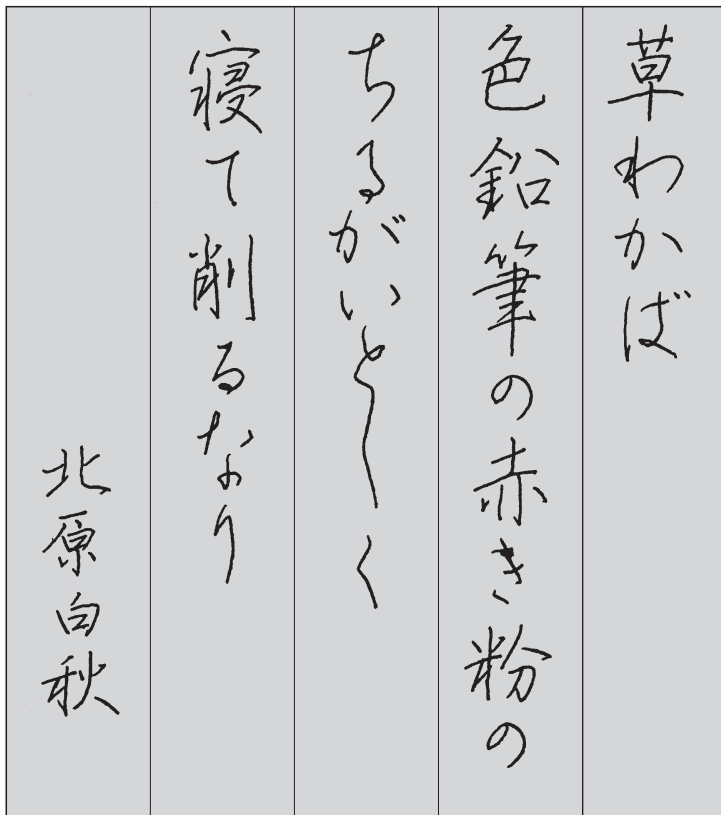 草わかば
色鉛筆の赤き粉の
ちるがいとしく
寝て削るなり
北原白秋